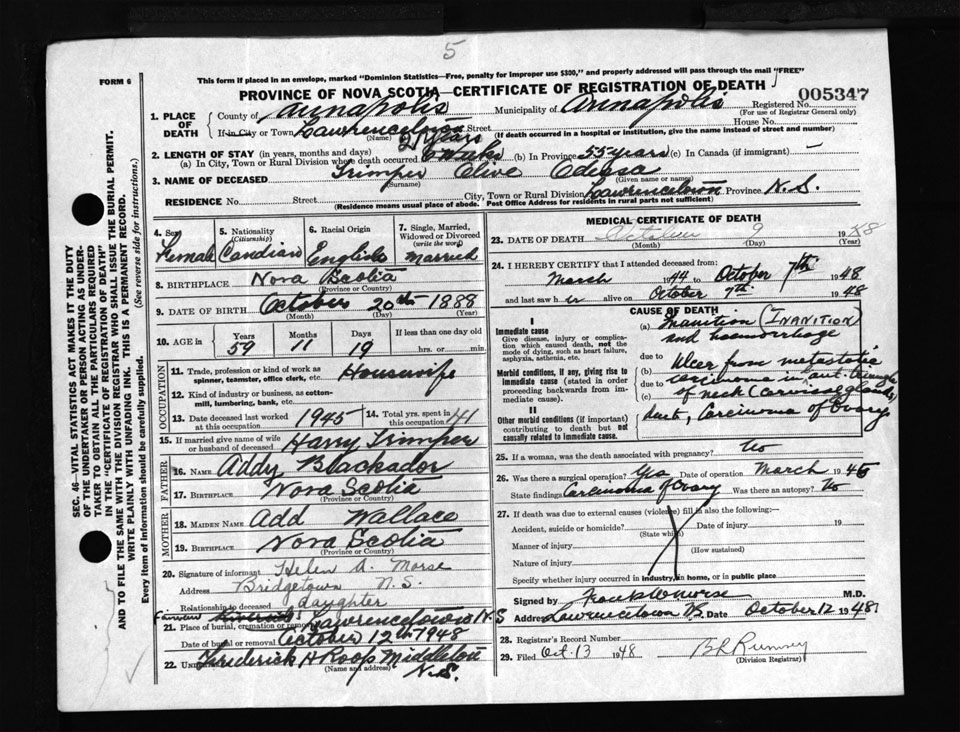 5
FORM 6
This form if placed in an envelope, marked "Dominion Statistics—Free, penalty for improper use $300," and properly addressed will pass through the mail "FREE"
PROVINCE OF NOVA SCOTIA—CERTIFICATE OF REGISTRATION OF DEATH
005347
1. PLACE OF DEATH
County of Annapolis Municipality of Annapolis Registered No.
(For use of Registrar General only)
If in City or Town Lawrencetown Street House No.
(Name) (If death occurred in a hospital or institution, give the name instead of street and number)
2. LENGTH OF STAY (in years, months and days) 21 years
(a) In City, Town or Rural Division where death occurred 6 weeks (b) In Province 55 years (c) In Canada (if immigrant) —
3. NAME OF DECEASED Trimper Olive Odessa
(Surname) (Given name or names)
RESIDENCE No. Street City, Town or Rural Division Lawrencetown Province N.S.
(Residence means usual place of abode. Post Office Address for residents in rural parts not sufficient)
4. Sex Female
5. Nationality (Citizenship) Candian
6. Racial Origin English
7. Single, Married, Widowed or Divorced (write the word) Married
8. BIRTHPLACE Nova Scotia
(Province or Country)
9. DATE OF BIRTH October 20th 1888
(Month) (Day) (Year)
10. AGE in Years Months Days If less than one day old
59 11 19 hrs. or min.
OCCUPATION
11. Trade, profession or kind of work as spinner, teamster, office clerk, etc. Housewife
12. Kind of industry or business, as cotton-mill, lumbering, bank, etc.
13. Date deceased last worked at this occupation 1945 14. Total yrs. spent in this occupation 41
15. If married give name of wife or husband of deceased Harry Trimper
FATHER
16. NAME Addy Blackador
17. BIRTHPLACE Nova Scotia
(Province or Country)
MOTHER
18. MAIDEN NAME Add Wallace
19. BIRTHPLACE Nova Scotia
(Province or Country)
20. Signature of informant Helen A. Morse
Address Bridgetown N.S.
Relationship to deceased daughter
21. Place of burial, cremation or removal Lawrencetown N.S
Date of burial or removal October 12th 1948
22. Undertaker Frederick H Roop Middleton N.S.
(Name and address)
MEDICAL CERTIFICATE OF DEATH
23. DATE OF DEATH October 9 1948
(Month) (Day) (Year)
24. I HEREBY CERTIFY that I attended deceased from:
March 1944 to October 7th 1948
and last saw her alive on October 7th 1948
CAUSE OF DEATH
I
Immediate cause
Give disease, injury or complication which caused death, not the mode of dying, such as heart failure, asphyxia, asthenia, etc.
Morbid conditions, if any, giving rise to immediate cause (stated in order proceeding backwards from immediate cause).
II
Other morbid conditions (if important) contributing to death but not causally related to immediate cause.
(a) Inanition (INANITION) and haemorrhage
due to
(b) Ulcer from metastatic
due to carcinoma in ant. triangle
(c) of neck (Cervical glands)
Carcinoma of Ovary
25. If a woman, was the death associated with pregnancy? No
26. Was there a surgical operation? Yes Date of operation March 1945
State findings Carcinoma of Ovary Was there an autopsy? No
27. If death was due to external causes (violence) fill in also the following:—
Accident, suicide or homicide? Date of injury 19
(State which)
Manner of injury
(How sustained)
Nature of injury
Specify whether injury occurred in industry, in home, or in public place
Signed by M.D.
Address Lawrencetown October 12 1948
28. Registrar's Record Number
29. Filed Oct. 13 1948
(Division Registrar)
SEC. 46—VITAL STATISTICS ACT MAKES IT THE DUTY
OF THE UNDERTAKER OR PERSON ACTING AS UNDER-
TAKER TO OBTAIN ALL THE PARTICULARS REQUIRED
IN THE "CERTIFICATE OF REGISTRATION OF DEATH"
AND TO FILE THE SAME WITH THE DIVISION REGISTRAR WHO SHALL ISSUE THE BURIAL PERMIT.
WRITE PLAINLY WITH UNFADING INK. THIS IS A PERMANENT RECORD.
Every item of information should be carefully supplied. (See reverse side for instructions.)